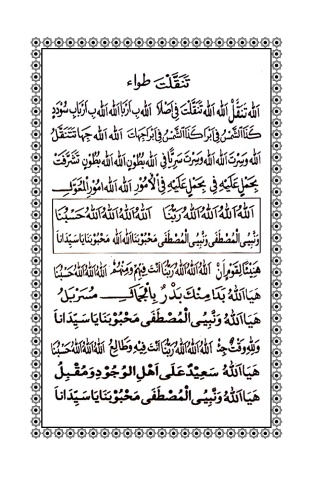 تَنَقَّلْتَ طواء
اَللهْ تَنَقَّلْ اَللهْ اَللهْ تَنَقَّلْتَ فِي اَصْلَا اَللهْ بِ اَرْبَا اَللهْ اَللهْ بِ اَرْبَابِ سُودَدِ
كَذَا الشَّمْسُ فِي اَبْرَ كَذَا الشَّمْسُ فِي اَبْرَاجِهَاتَ اَللهْ اَللهْ جِهَاتَتَنَقَّلُ
اَللهْ وَسِرْتَ اَللهْ اَللهْ وَسِرْتَ سِرِيًّا فِي اَللهْ بُطُوْنٍ اَللهْ اَللهْ بُطُوْنٍ تَشَرَّفَتْ
بِحَمْلٍ عَلَيْهِ فِي بِحَمْلٍ عَلَيْهِ فِي الْاُمُوْرِ اَللهْ اَللهْ اُمُوْرِ الْمُعَوَّلُ
اَللهُ اَللهُ اَللهُ اَللهُ رَبُّنَا اَللهُ اَللهُ اَللهُ اَللهُ حَسْبُنَا
وَنَبِيِى الْمُصْطَفَى وَنَبِيِى الْمُصْطَفَى مَحْبُوْبُنَا اَللهْ اَللهْ مَحْبُوْبُنَا يَا سَيِّدَانَا
هَنِيْئًا لِقَوْمٍ اَنْ اَللهُ اَللهُ اَللهُ رَبُّنَا اَنْتَ فِيْهِمْ وَمِنْهُمُ اَللهُ اَللهُ اَللهُ حَسْبُنَا
هَيَا اَللهُ بَدَا مِنْكَ بَدْرٌ بِالْجَمَالِ مُسَرْبَلُ
هَيَا اَللهُ وَنَبِيِى الْمُصْطَفَى مَحْبُوْبُنَا يَا سَيِّدَانَا
وَلِلّٰهِ وَقْتٌ جِئْ اَللهُ اَللهُ اَللهُ رَبُّنَا اَنْتَ فِيْهِ وَطَالِعُ اَللهُ اَللهُ اَللهُ حَسْبُنَا
هَيَا اَللهُ سَعِيْدٌ عَلَى اَهْلِ الْوُجُوْدِ وَمُقْبِلُ
هَيَا اَللهُ وَنَبِيِى الْمُصْطَفَى مَحْبُوْبُنَا يَا سَيِّدَانَا